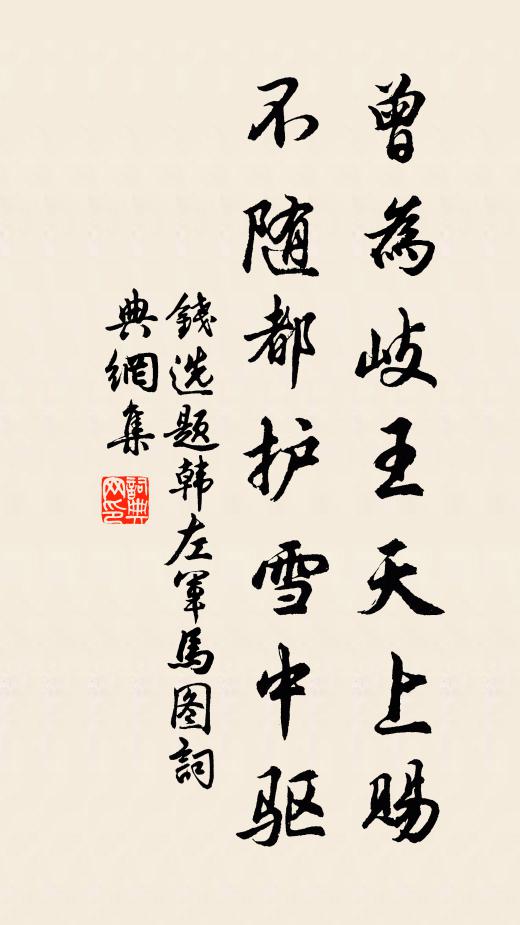 曾為岐王天上賜
不随都护雪中驱
錢选题韩左軍馬图詞
典網集
詞典網印